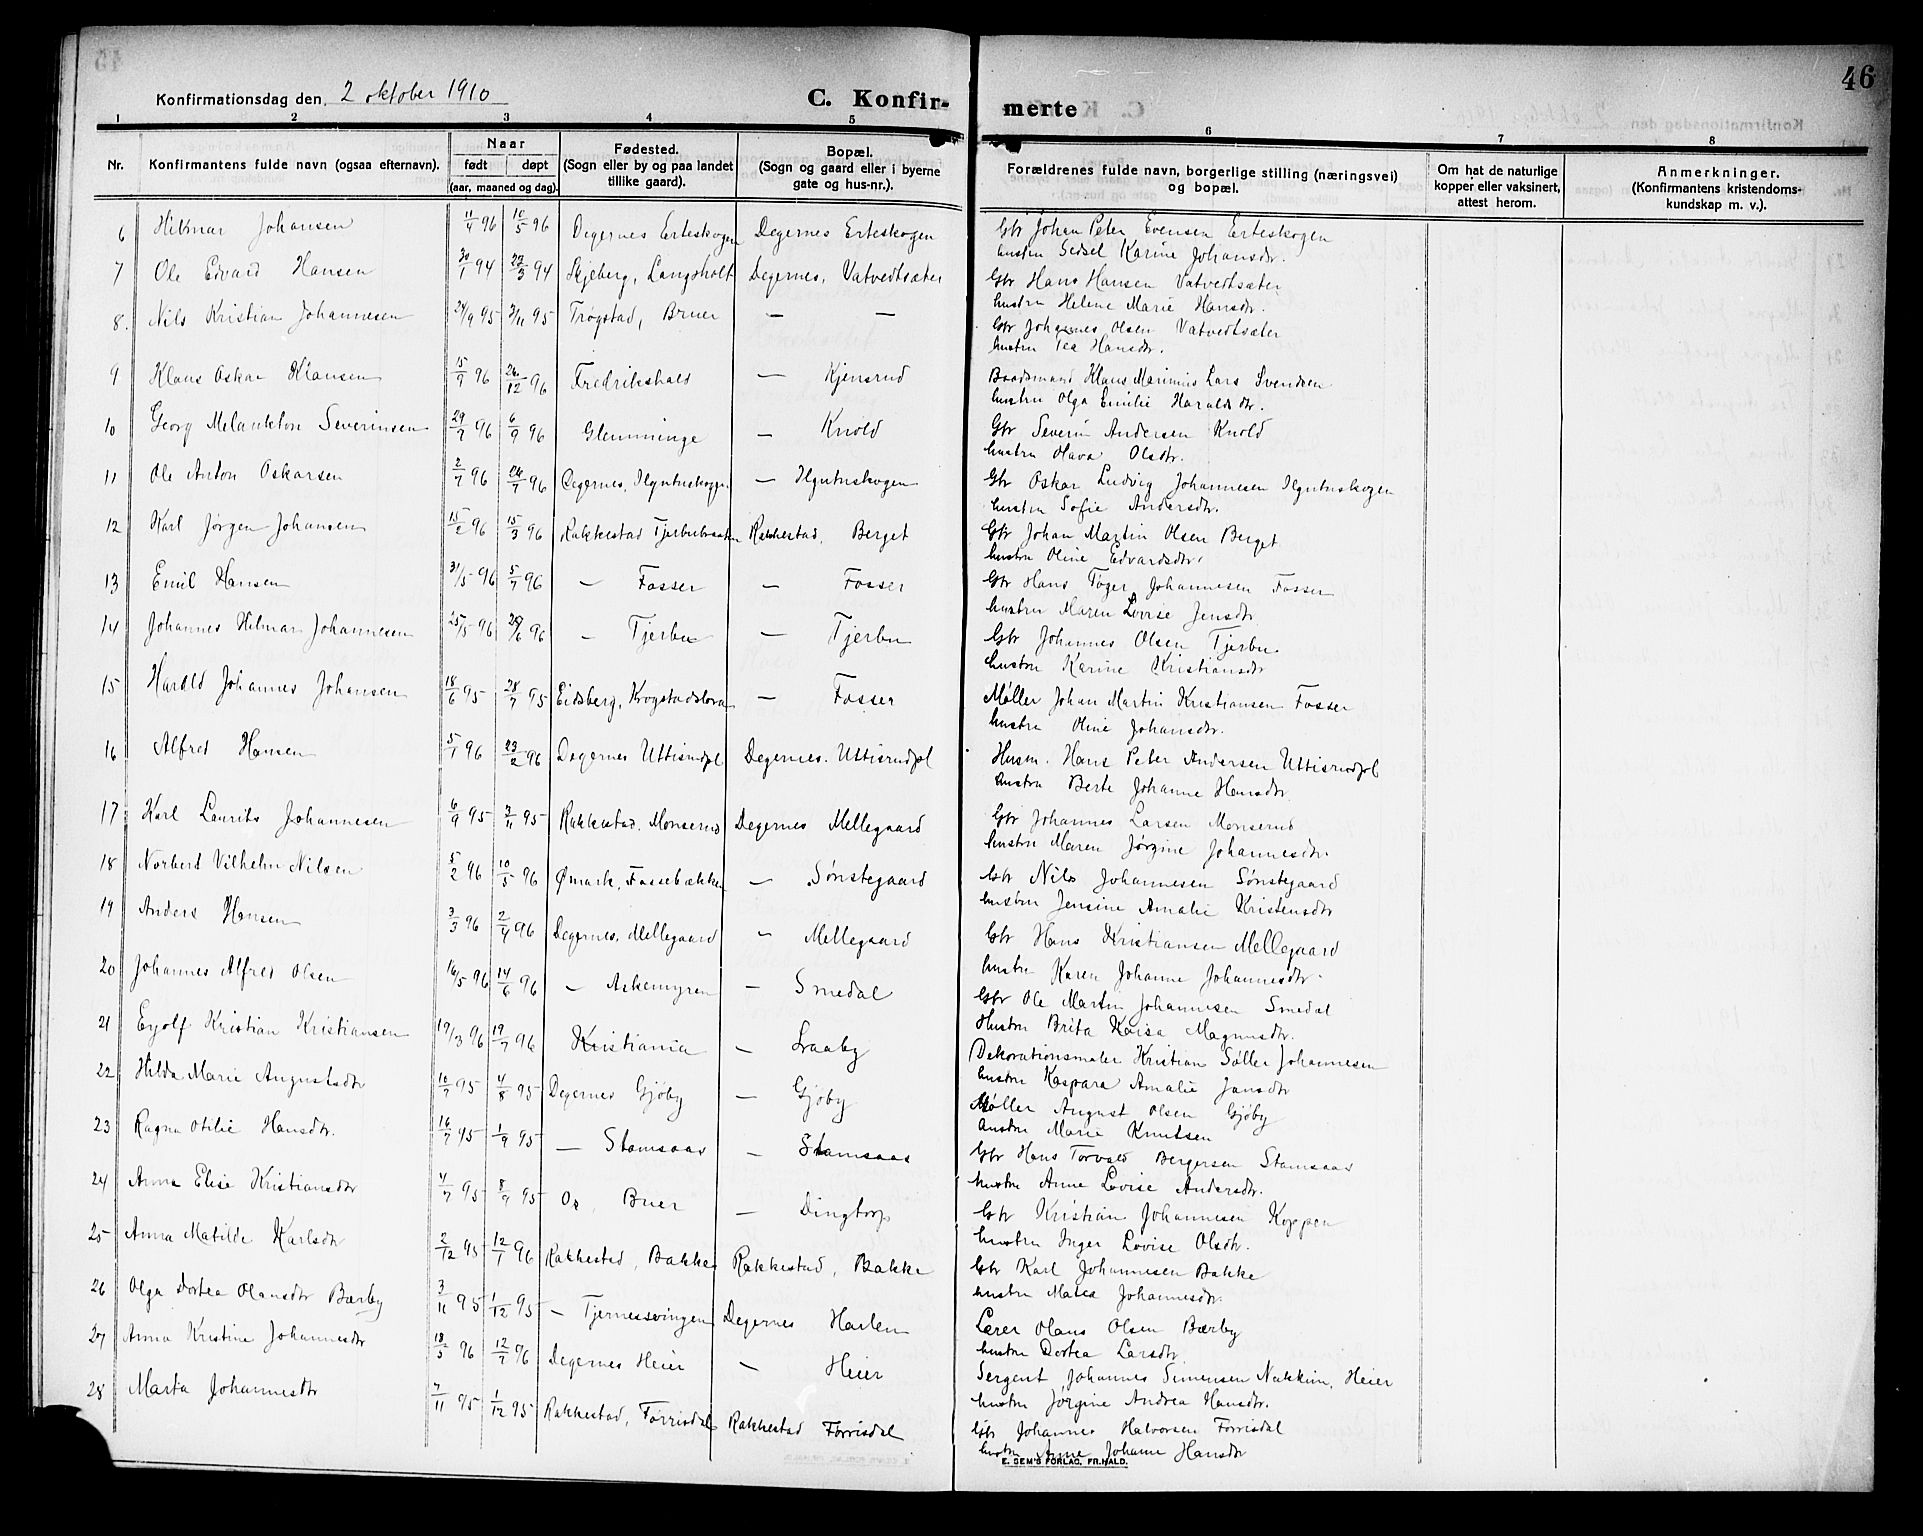 46
Konfirmationsdag den 2 oktober 1910
C. Konfir-
merte
1 2 3 4 5 6 7 8
Nr. Konfirmantens fulde navn (ogsaa efternavn). Naar født døpt (aar, maaned og dag). Fødested. (Sogn eller by og paa landet tillike gaard). Bopæl. (Sogn og gaard eller i byerne gate og hus-nr.). Forældrenes fulde navn, borgerlige stilling (næringsvei) og bopæl. Om hat de naturlige kopper eller vaksinert, attest herom. Anmerkninger. (Konfirmantens kristendoms-kundskap m. v.).
6 Hilmar Johansen 11/4 96 10/5 96 Degernes Erteskogen Degernes Erteskogen Gbr Johan Peter Evensen Erteskogen
hustru Sedsel Karine Johansdtr.
7 Ole Edvard Hansen 30/1 94 22/3 94 Skjeberg, Langsholt Degernes, Vatvedtsæter Gbr Hans Hansen Vatvedtsæter
hustru Helene Marie Hansdtr.
8. Nils Kristian Johannesen 24/9 95 3/11 95 Trøgstad, Bruer — — Gbr Johannes Olsen Vatvedtsæter
hustru Tea Hansdtr.
9 Klaus Oskar Klausen 15/9 96 26/12 96 Fredrikshald — Kjensrud Baadsmand Klaus Marinius Lars Svendsen
hustru Olga Emilie Haraldsdtr.
10 Georg Melankton Severinsen 29/7 96 6/9 96 Glemminge — Knold Gbr Severin Andersen Knold
hustru Hava Olsdtr.
11 Ole Anton Oskarsen 2/7 96 26/7 96 Degernes, Ilgutuskogen — Ilgutuskogen Gbr Oskar Ludvig Johannesen Ilgutuskogen
hustru Sofie Andersdtr.
12 Karl Jørgen Johansen 15/2 96 15/3 96 Rakkestad Tjerbubraaten Rakkestad, Berget Gbr Johan Martin Olsen Berget
hustru Oline Edvardsdtr.
13 Emil Hansen 31/5 96 5/7 96 — Fosser — Fosser Gbr Hans Tøger Johannesen Fosser
hustru Maren Lovise Jensdtr
14 Johannes Hilmar Johannesen 25/5 96 29/6 96 — Tjerbu — Tjerbu Gbr Johannes Olsen Tjerbu
hustru Karine Kristiansdtr
15 Harald Johannes Johansen 18/6 95 28/7 95 Eidsberg, Krogstadsbra — Fosser Møller Johan Martin Kristiansen Fosser
hustru Oline Johansdtr.
16 Alfred Hansen 5/1 96 23/2 96 Degernes Uttisrudpl Degernes. Uttisrudpl Husm. Hans Peter Andersen Uttisrudpl
hustru Berte Johanne Hansdtr
17 Karl Laurits Johannesen 6/9 95 3/11 95 Rakkestad. Monserud Degernes Mellegaard Gbr Johannes Larsen Monserud
hustru Maren Jørgine Johannesdtr.
18 Norbert Vilhelm Nilsen 5/2 96 10/5 96 Ømark, Fossebækken — Sønstegaard Gbr Nils Johannesen Sønstegaard
hustru Jensine Amalie Kristensdtr
19 Anders Hansen 3/3 96 2/4 96 Degernes, Mellegaard — Mellegaard Gbr Hans Kristiansen Mellegaard
hustru Karen Johanne Johannesdtr.
20 Johannes Alfred Olsen 16/5 96 14/6 96 — Askemyren — Smedal Gbr Ole Martin Johannesen Smedal
Hustru Brita Kaisa Magnusdtr.
21 Eyolf Kristian Kristiansen 19/3 96 19/7 96 Kristiania — Traaby Dekorationsmaler Kristian Søller Johannesen
hustru Kaspara Amalie Jansdtr
22 Hilda Marie Augustsdtr 10/7 95 4/8 95 Degernes Gjøby — Gjøby Møller August Olsen Gjøby
hustru Marie Knutsen
23 Ragna Otilie Hansdtr. 16/7 95 1/9 95 — Stomsaas — Stomsaas Gbr Hans Torvald Bergersen Stomsaas
hustru Anne Lovise Andersdtr.
24 Anna Elise Kristiansdtr 4/7 95 8/9 95 Os, Buer — Dingtorp Gbr Kristian Johannesen Koppen
hustru Inger Lovise Olsdtr.
25 Anna Matilde Karlsdtr 2/12 95 12/1 96 Rakkestad, Bakke Rakkestad, Bakke Gbr Karl Johannesen Bakke
hustru Matea Johannesdtr.
26 Olga Dortea Olausdtr Bærby 3/11 95 1/12 95 — Tjernessvingen Degernes Harlem Lærer Olaus Olsen Bærby
hustru Dortea Larsdtr
27 Anna Kristine Johannesdtr 18/5 96 12/7 96 Degernes Heier — Heier Sergent Johannes Simensen Nakkim, Heier
hustru Jørgine Andrea Hansdtr.
28 Marta Johannesdtr 7/11 95 1/12 95 Rakkestad, Førrisdal Rakkestad Førrisdal Gbr Johannes Halvorsen Førrisdal
hustru Anne Johanne Hansdtr
E. SEM'S FORLAG, FR.HALD.